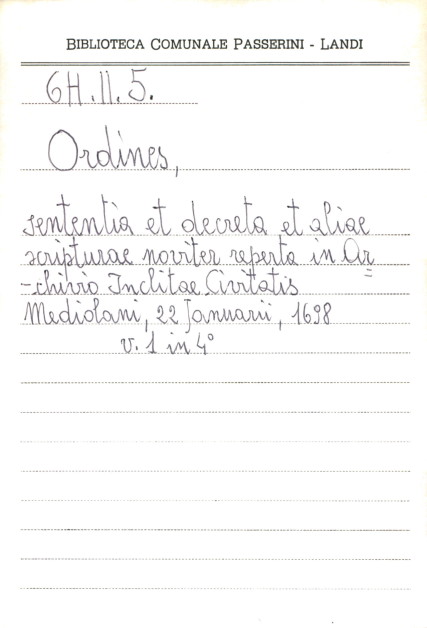 BIBLIOTECA COMUNALE PASSERINI - LANDI
6H.II.5.
Ordines,
sententia et decreta et aliae
scripturae noviter reperta in Ar=
-chivio Inclitae Civitatis
Mediolani, 22 Januarii, 1698
v. 1 in 4°